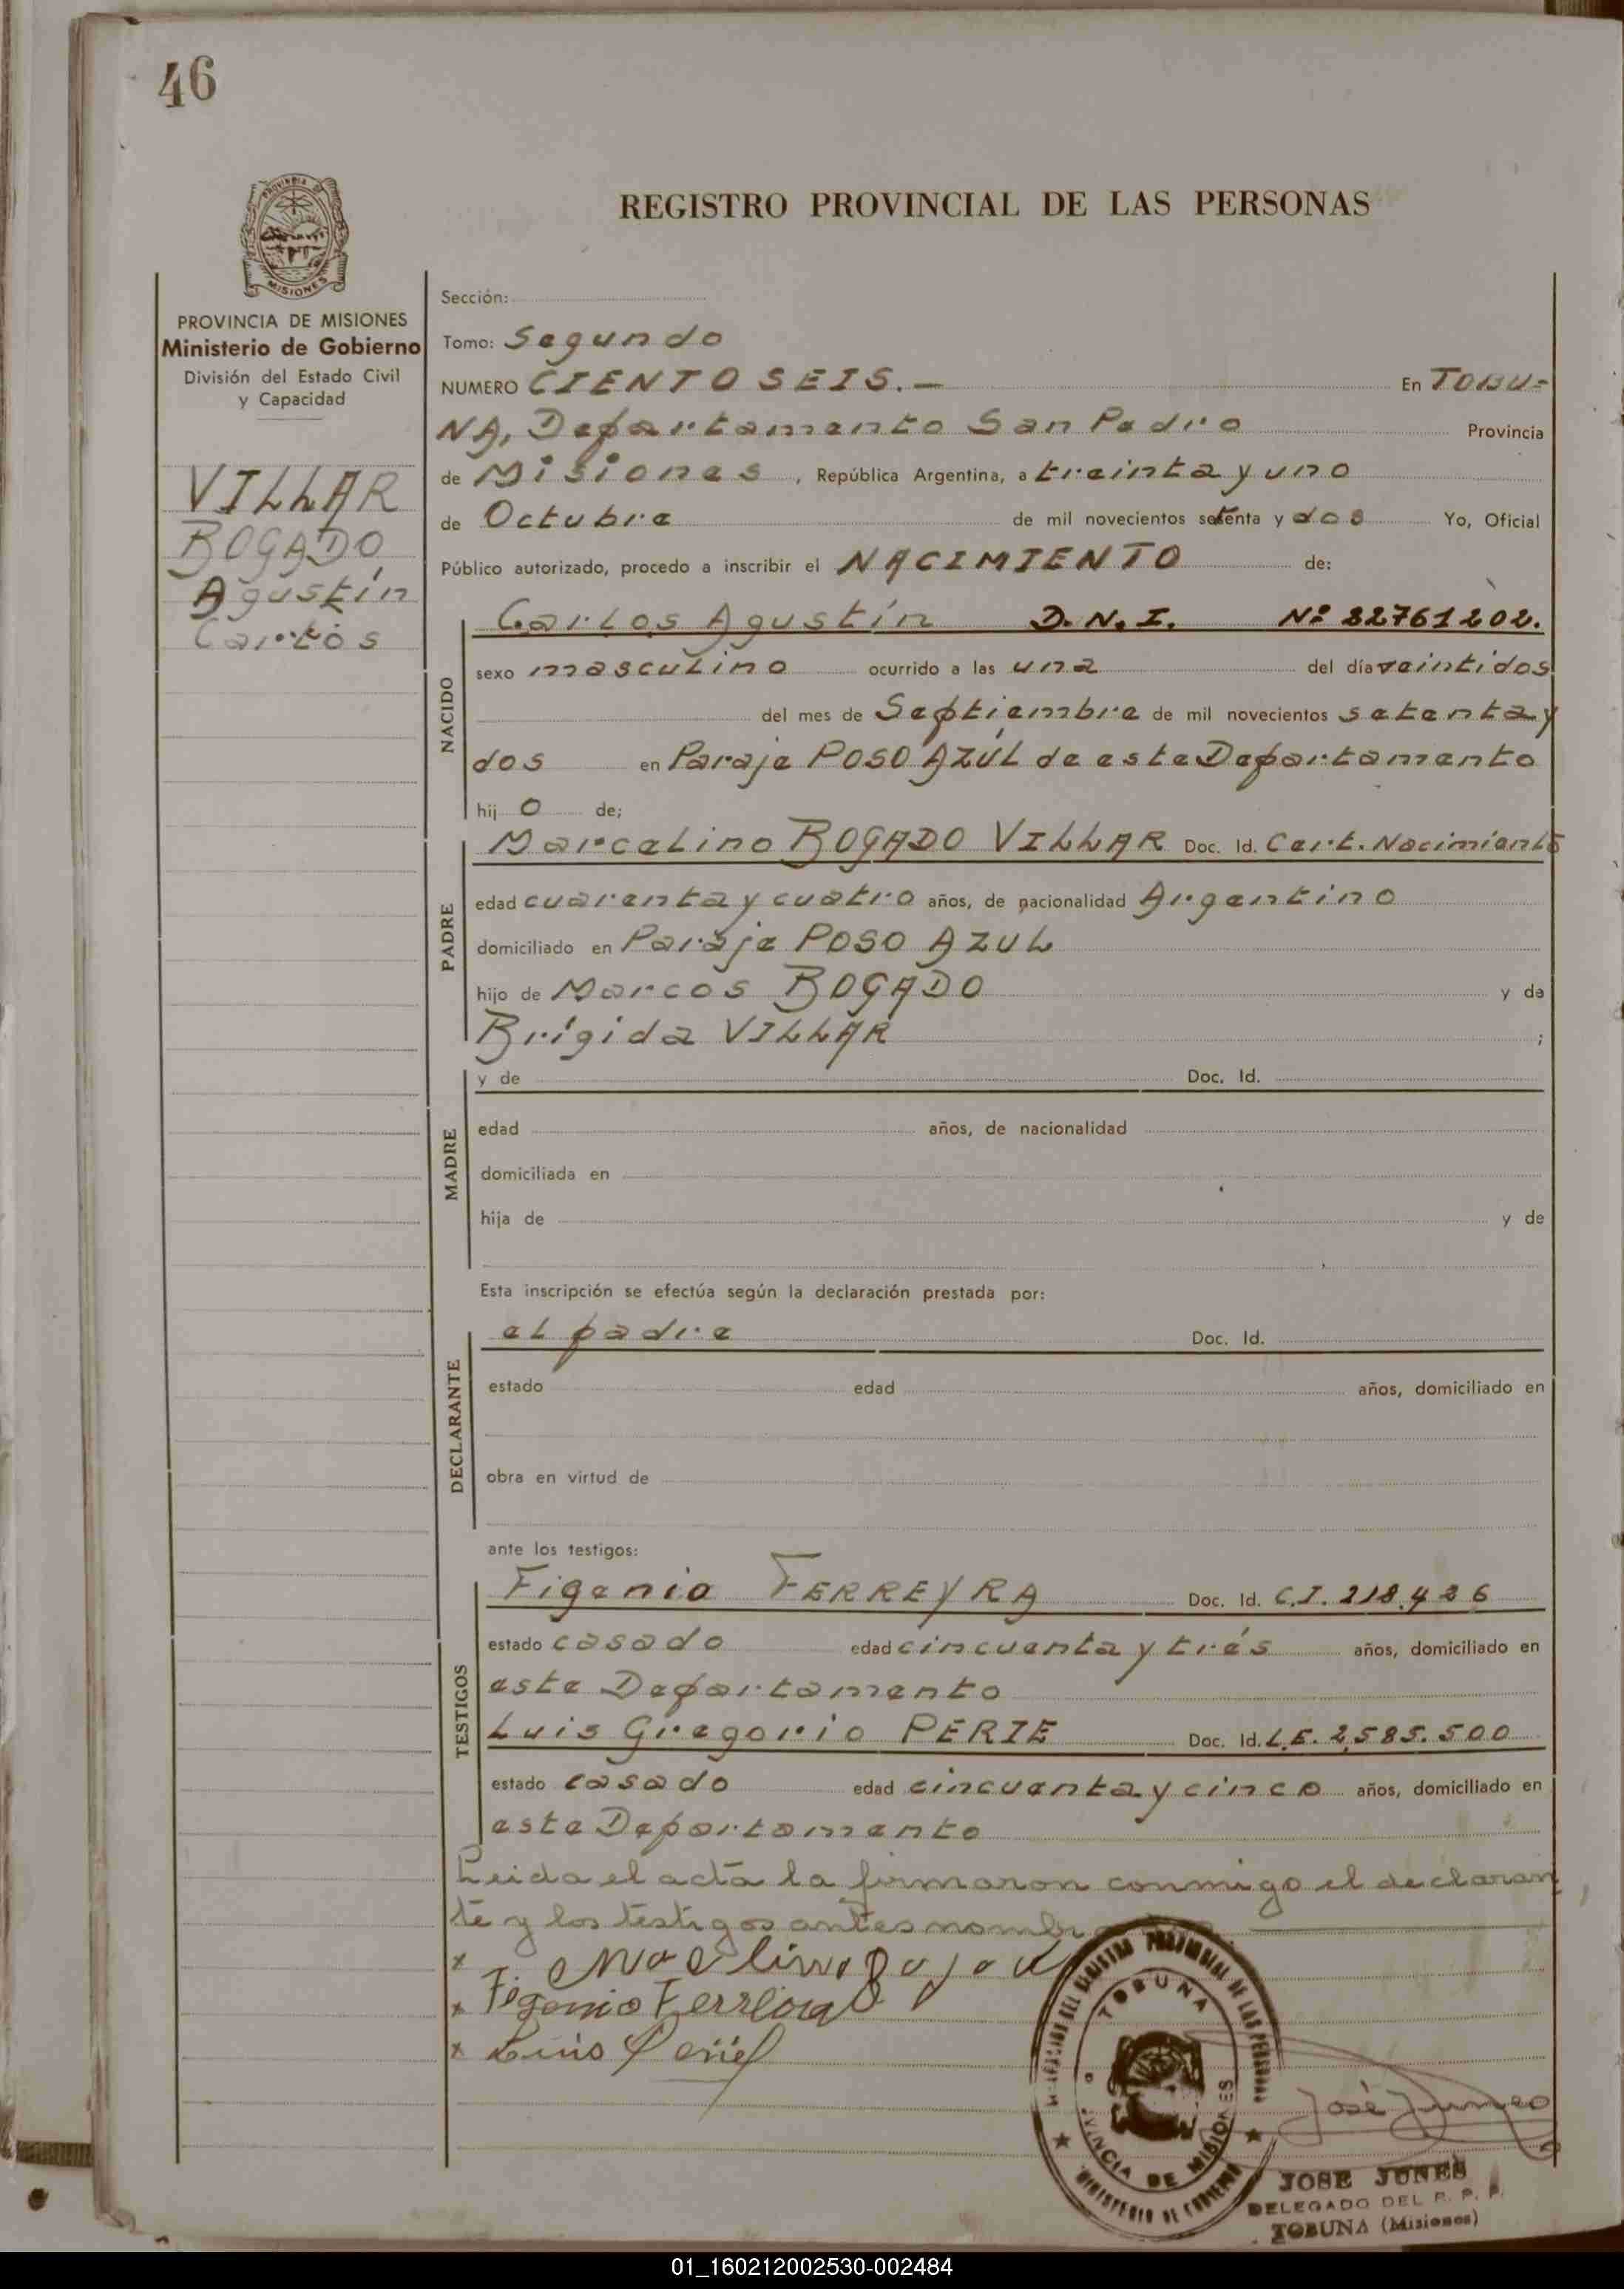 46
PROVINCIA DE
MISIONES
REGISTRO PROVINCIAL DE LAS PERSONAS
PROVINCIA DE MISIONES
Ministerio de Gobierno
División del Estado Civil
y Capacidad
VILLAR
BOGADO,
Agustín
Carlos
Sección:
Tomo: Segundo
NUMERO CIENTO SEIS.— En TOBU-
NA, Departamento San Pedro Provincia
de Misiones, República Argentina, a treinta y uno
de Octubre de mil novecientos setenta y dos Yo, Oficial
Público autorizado, procedo a inscribir el NACIMIENTO de:
NACIDO
Carlos Agustín D.N.I. Nº 22761202.
sexo masculino ocurrido a las una del día veintidos
del mes de Septiembre de mil novecientos setenta y
dos en Paraje POSO AZÚL de este Departamento
hij o de;
PADRE
Marcelino BOGADO VILLAR Doc. Id. Cert. Nacimiento
edad cuarenta y cuatro años, de nacionalidad Argentino
domiciliado en Paraje POSO AZUL
hijo de Marcos BOGADO y de
Brígida VILLAR ;
MADRE
y de Doc. Id.
edad años, de nacionalidad
domiciliada en
hija de y de
Esta inscripción se efectúa según la declaración prestada por:
DECLARANTE
el padre Doc. Id.
estado edad años, domiciliado en
obra en virtud de
ante los testigos:
TESTIGOS
Figenio FERREYRA Doc. Id. C.I. 218.426
estado casado edad cincuenta y trés años, domiciliado en
este Departamento
Luis Gregorio PERIE Doc. Id. L.E. 2,585.500
estado casado edad cincuenta y cinco años, domiciliado en
este Departamento
Leida el acta la firmaron conmigo el declaran
te y los testigos antes
x
x Figenio Ferreira
x Luis Perié
DEL REGISTRO PROVINCIAL DE LAS PERSONAS
TOBUNA
PROVINCIA DE MISIONES
MINISTERIO DE GOBIERNO
José Junes
JOSE JUNES
DELEGADO DEL R. P. P.
TOBUNA (Misiones)
01_160212002530-002484